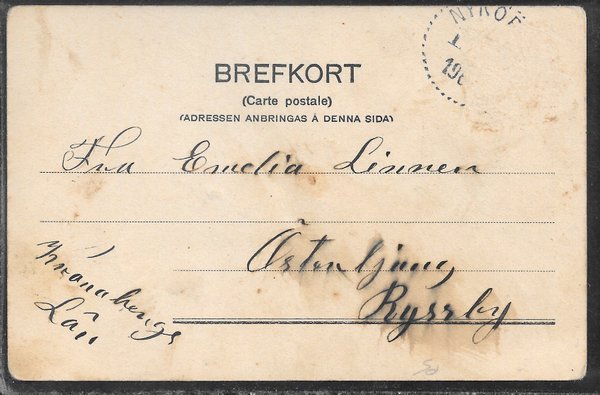 NYKÖP
1
190
BREFKORT
(Carte postale)
(ADRESSEN ANBRINGAS Å DENNA SIDA)
Fru Emelia Linnen
Östenljung
Ryssby
Län